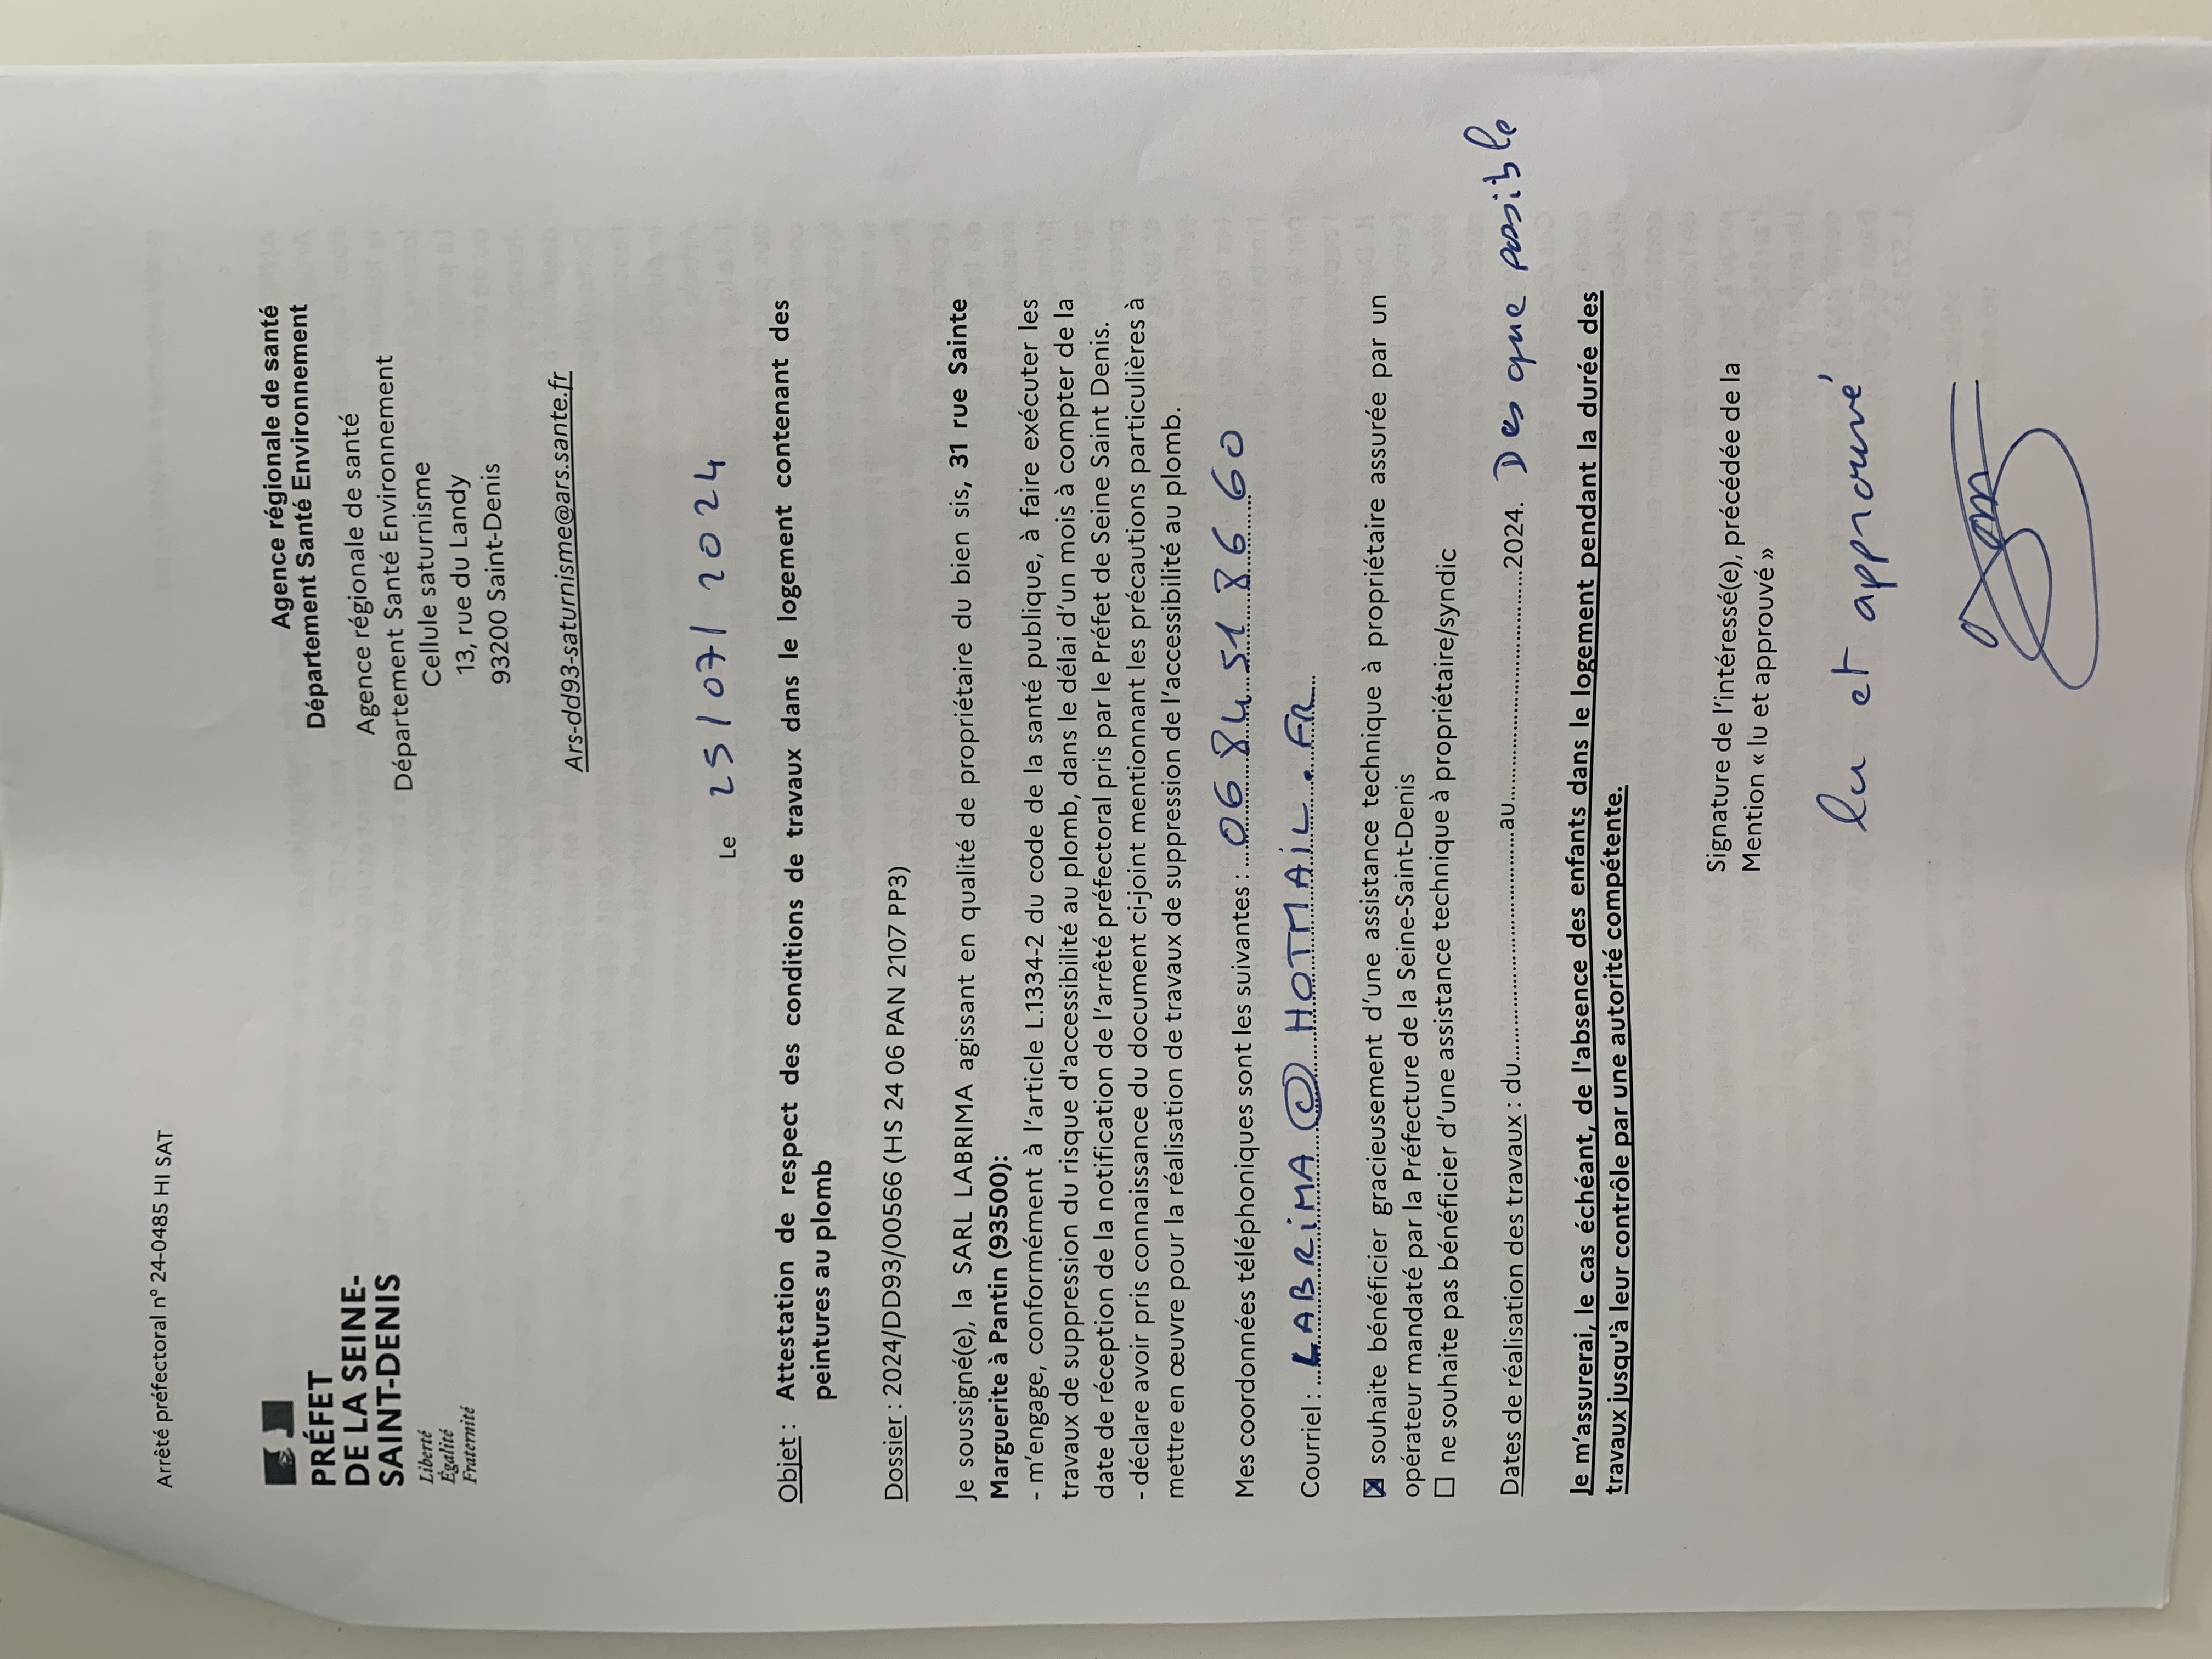 Arrêté préfectoral n° 24-0485 HI SAT
PRÉFET
DE LA SEINE-
SAINT-DENIS
Liberté
Égalité
Fraternité
Agence régionale de santé
Département Santé Environnement
Agence régionale de santé
Département Santé Environnement
Cellule saturnisme
13, rue du Landy
93200 Saint-Denis
Ars-dd93-saturnisme@ars.sante.fr
Le 25/07/2024
Objet : Attestation de respect des conditions de travaux dans le logement contenant des
peintures au plomb
Dossier : 2024/DD93/00566 (HS 24 06 PAN 2107 PP3)
Je soussigné(e), la SARL LABRIMA agissant en qualité de propriétaire du bien sis, 31 rue Sainte
Marguerite à Pantin (93500):
- m'engage, conformément à l'article L.1334-2 du code de la santé publique, à faire exécuter les
travaux de suppression du risque d'accessibilité au plomb, dans le délai d'un mois à compter de la
date de réception de la notification de l'arrêté préfectoral pris par le Préfet de Seine Saint Denis.
- déclare avoir pris connaissance du document ci-joint mentionnant les précautions particulières à
mettre en œuvre pour la réalisation de travaux de suppression de l'accessibilité au plomb.
Mes coordonnées téléphoniques sont les suivantes : 06 84 51 86 60
Courriel : LABRiMA @ HOTMAiL . FR
☒ souhaite bénéficier gracieusement d'une assistance technique à propriétaire assurée par un
opérateur mandaté par la Préfecture de la Seine-Saint-Denis
☐ ne souhaite pas bénéficier d'une assistance technique à propriétaire/syndic
Dates de réalisation des travaux : du....................................au....................................2024. Des que possible
Je m'assurerai, le cas échéant, de l'absence des enfants dans le logement pendant la durée des
travaux jusqu'à leur contrôle par une autorité compétente.
Signature de l'intéressé(e), précédée de la
Mention « lu et approuvé »
lu et approuvé